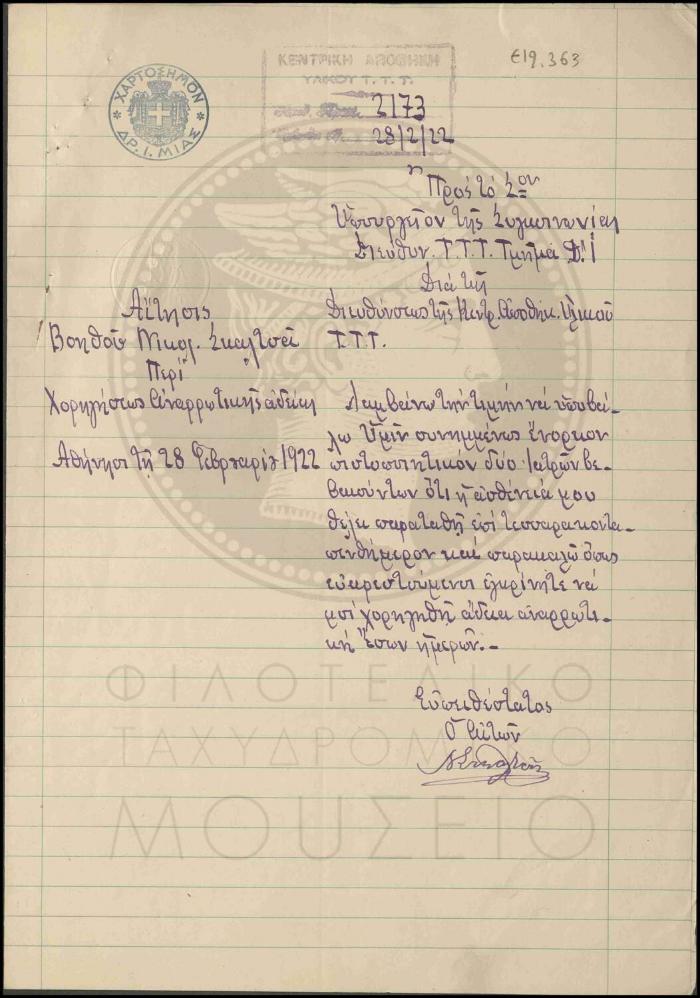 Ε19.363
ΧΑΡΤΟΣΗΜΟΝ
ΔΡ. 1. ΜΙΑΣ
ΚΕΝΤΡΙΚΗ ΑΠΟΘΗΚΗ
ΥΛΙΚΟΥ Τ. Τ. Τ.
2173
28/2/22
Πρός τό Σον
Ὑπουργεῖον τῆς Συγκοινωνίας
Διεύθυν. Τ.Τ.Τ. Τμῆμα
Διά τῆς
Διευθύνσεως τῆς Κεντρ. Ἀποθήκ. Ὑλικοῦ
Τ.Τ.Τ.
Αἴτησις
Βοηθοῦ Νικολ. Σκαλτσᾶ
Περί
Χορηγήσεως ἀναρρωτικῆς ἀδείας
Ἀθήνησι τῇ 28 Φεβρουαρίου 1922
Λαμβάνω τήν τιμήν νά ὑποβά-
λω Ὑμῖν συνημμένως ἔνορκον
πιστοποιητικόν δύο Ἰατρῶν βε-
βαιούντων ὅτι ἡ ἀσθένειά μου
θέλει παραταθῆ ἐπί τεσσαρακοντα-
πενθήμερον καί παρακαλῶ ὅπως
εὐαρεστούμενοι ἐγκρίνητε νά
μοί χορηγηθῇ ἄδεια ἀναρρωτι-
κή ἴσων ἡμερῶν.-
Εὐπειθέστατος
Ὁ Αἰτῶν
ΦΙΛΟΤΕΛΙΚΟ
ΤΑΧΥΔΡΟΜΙΚΟ
ΜΟΥΣΕΙΟ